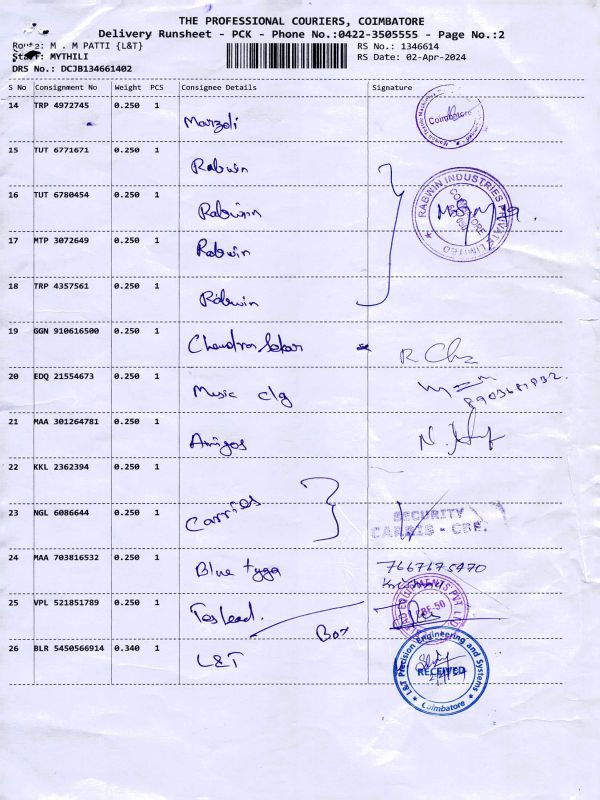 THE PROFESSIONAL COURIERS, COIMBATORE
Delivery Runsheet - PCK - Phone No.:0422-3505555 - Page No.:2
Route: M . M PATTI {L&T}
RS No.: 1346614
Staff: MYTHILI
RS Date: 02-Apr-2024
DRS No.: DCJB134661402
S No Consignment No Weight PCS Consignee Details Signature
14 TRP 4972745 0.250 1 Marzoli
Coimbatore
15 TUT 6771671 0.250 1 Rabwin
16 TUT 6780454 0.250 1 Rabwinn
RABWIN INDUSTRIES PRIVATE LIMITED
COIMBATORE
17 MTP 3072649 0.250 1 Rabwin
18 TRP 4357561 0.250 1 Rabwin
19 GGN 910616500 0.250 1 Chandra Sekar
R
20 EDQ 21554673 0.250 1 Music clg
21 MAA 301264781 0.250 1 Amigos
N.
22 KKL 2362394 0.250 1
23 NGL 6086644 0.250 1 Carries
SECURITY
CARRIS - CBE.
24 MAA 703816532 0.250 1 Blue tyga
7667675970
25 VPL 521851789 0.250 1 Teslead.
EQUIPMENTS PVT
CBE-50
Box
26 BLR S450566914 0.340 1 L&T
L&T Precision Engineering and Systems
RECEIVED
Coimbatore